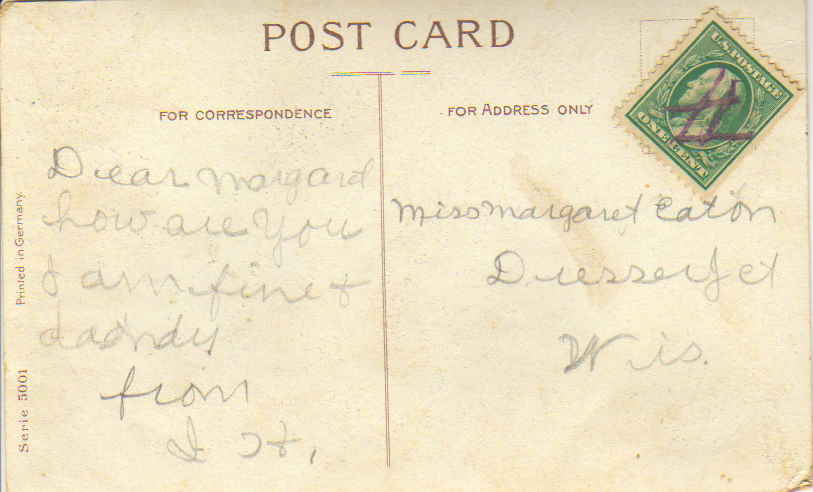 POST CARD
FOR CORRESPONDENCE
FOR ADDRESS ONLY
U.S. POSTAGE
ONE CENT
Dear Margard
how are you
I am fine &
dandy
from
I H.
Miss Margaret Eaton
Dresser Jct
Wis.
Printed in Germany.
Serie 5001